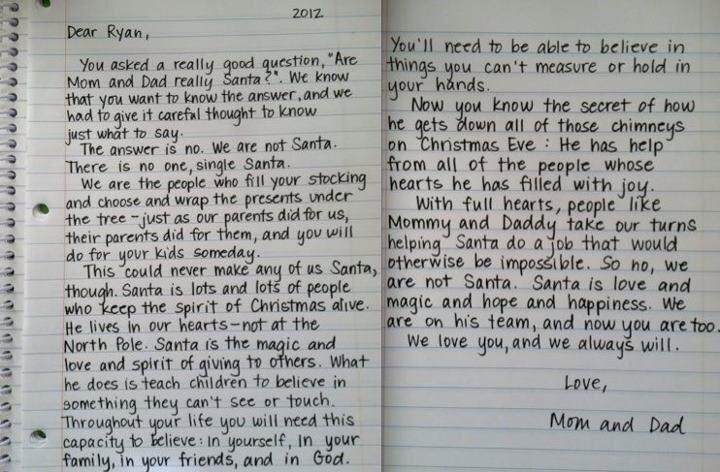 2012
Dear Ryan,
You asked a really good question, "Are
Mom and Dad really Santa?". We know
that you want to know the answer, and we
had to give it careful thought to know
just what to say.
The answer is no. We are not Santa.
There is no one, single Santa.
We are the people who fill your stocking
and choose and wrap the presents under
the tree - just as our parents did for us,
their parents did for them, and you will
do for your kids someday.
This could never make any of us Santa,
though. Santa is lots and lots of people
who keep the spirit of Christmas alive.
He lives in our hearts - not at the
North Pole. Santa is the magic and
love and spirit of giving to others. What
he does is teach children to believe in
something they can't see or touch.
Throughout your life you will need this
capacity to believe: In yourself, In your
family, in your friends, and in God.
You'll need to be able to believe in
things you can't measure or hold in
your hands.
Now you know the secret of how
he gets down all of those chimneys
on Christmas Eve: He has help
from all of the people whose
hearts he has filled with joy.
With full hearts, people like
Mommy and Daddy take our turns
helping Santa do a job that would
otherwise be impossible. So no, we
are not Santa. Santa is love and
magic and hope and happiness. We
are on his team, and now you are too.
We love you, and we always will.
Love,
Mom and Dad